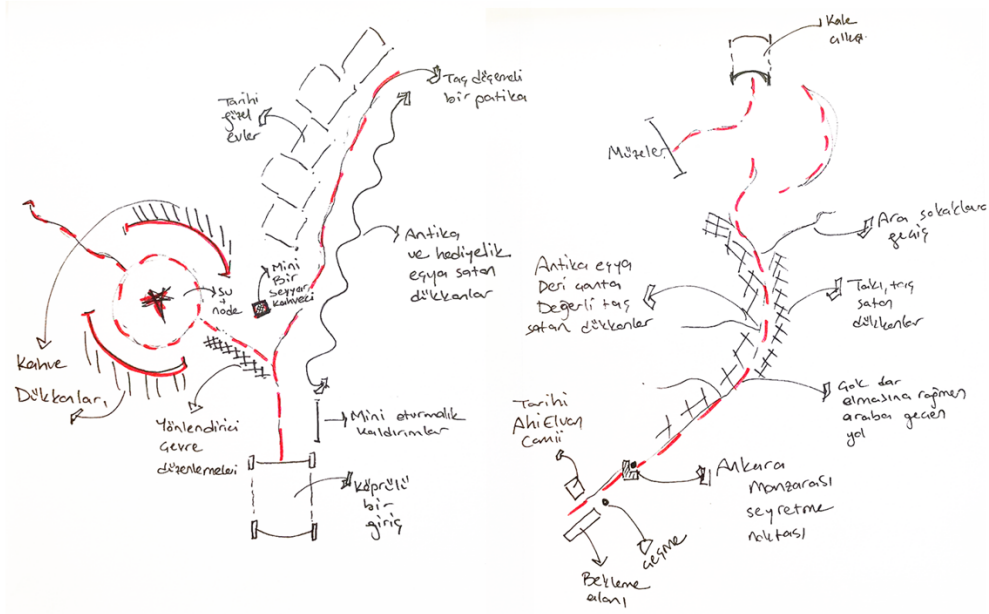 Tarihi
güzel
evler
Taş döşemeli
bir patika
Antika
ve hediyelik
eşya satan
dükkanlar
Mini
Bir
seyyar
kahveci
su
node
Kahve
Dükkanları
Yönlendirici
çevre
düzenlemeleri
Mini oturmalık
kaldırımlar
Köprülü
bir
giriş
Kale
çıkışı
Müzeler
Ara sokaklara
geçiş
Antika eşya
Deri çanta
Değerli taş
satan dükkanlar
Takı, taş
satan
dükkanlar
Çok dar
olmasına rağmen
araba geçen
yol
Tarihi
Ahi Elvan
Camii
Ankara
Manzarası
seyretme
noktası
Çeşme
Bekleme
alanı